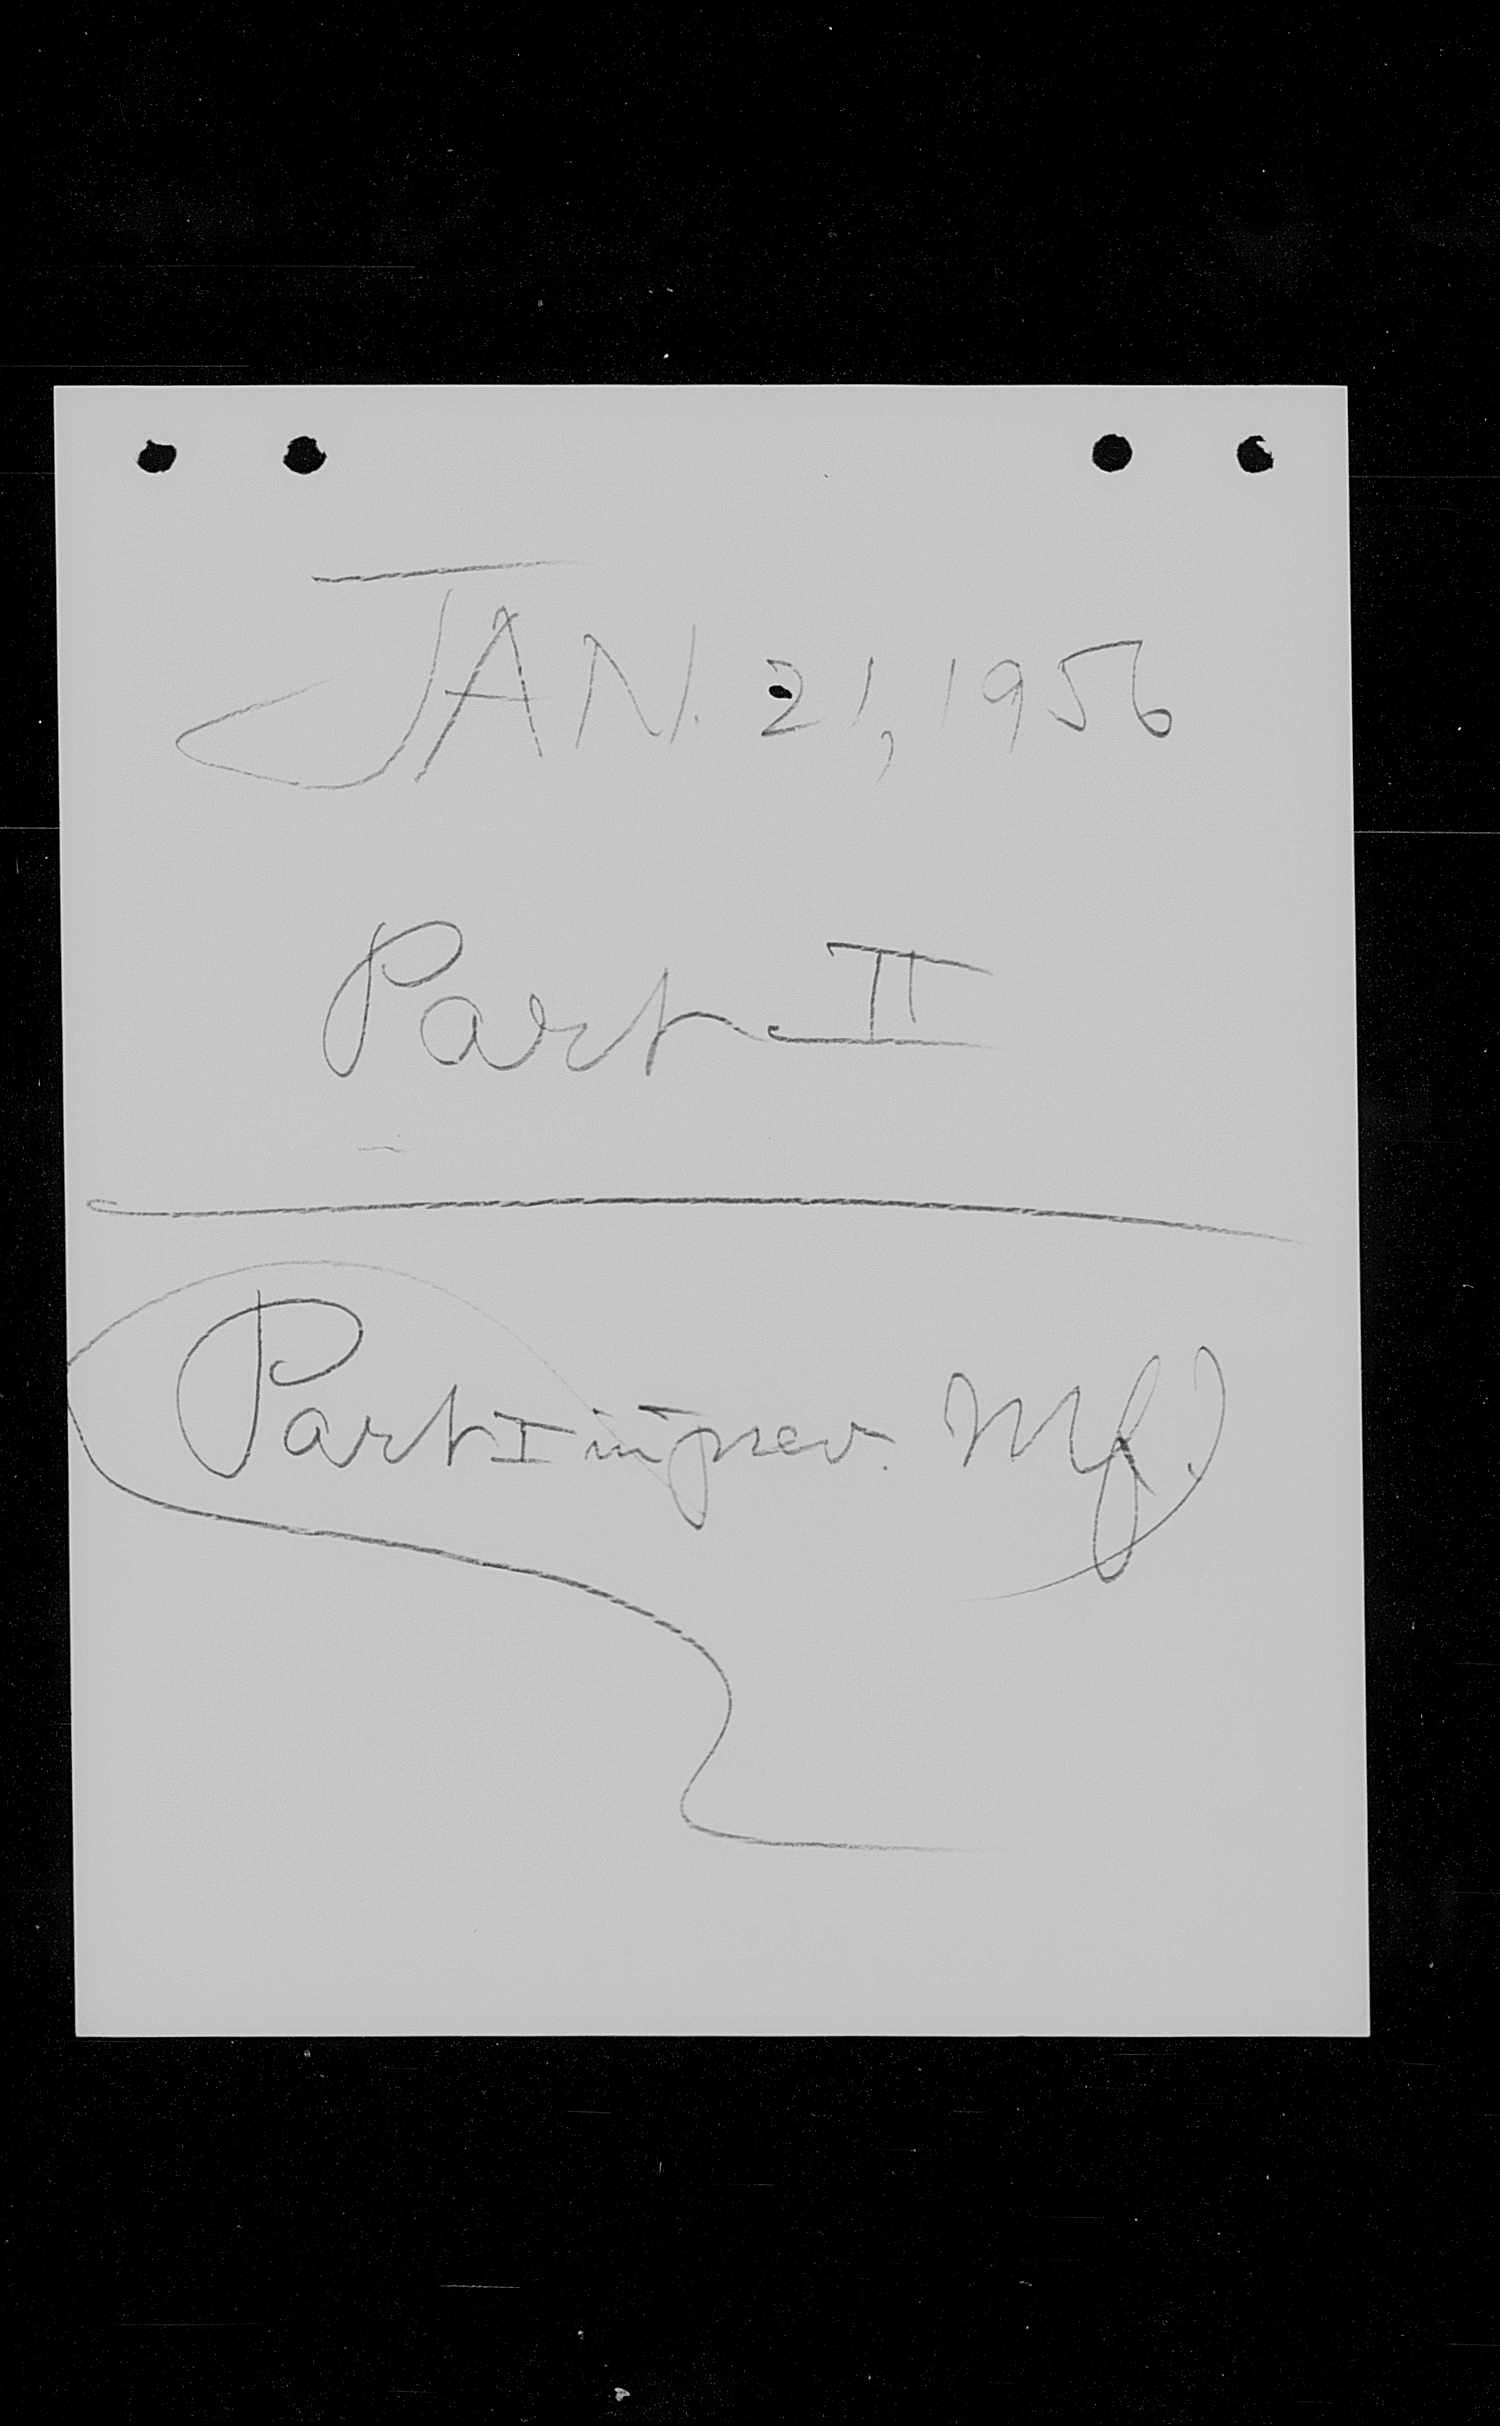 JAN. 21, 1956
Part II
Part I in prev. Mf.)